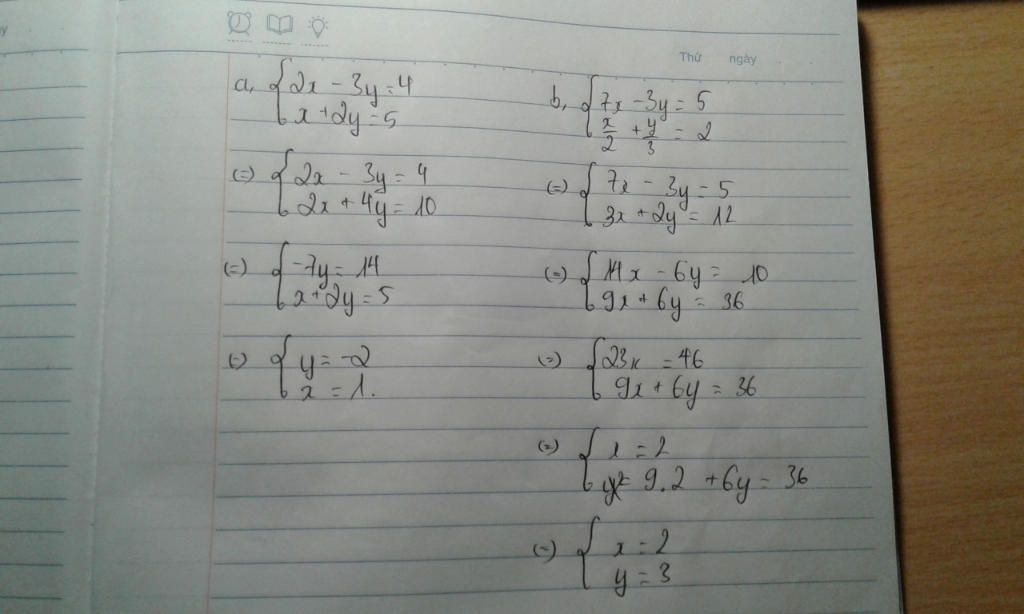 Thứ ngày
a, { 2x - 3y = 4
x + 2y = 5
(=) { 2x - 3y = 4
2x + 4y = 10
(=) { -7y = 14
x + 2y = 5
(=) { y = -2
x = 1.
b, { 7x - 3y = 5
x/2 + y/3 = 2
(=) { 7x - 3y = 5
3x + 2y = 12
(=) { 14x - 6y = 10
9x + 6y = 36
(=) { 23x = 46
9x + 6y = 36
(=) { x = 2
9.2 + 6y = 36
(=) { x = 2
y = 3